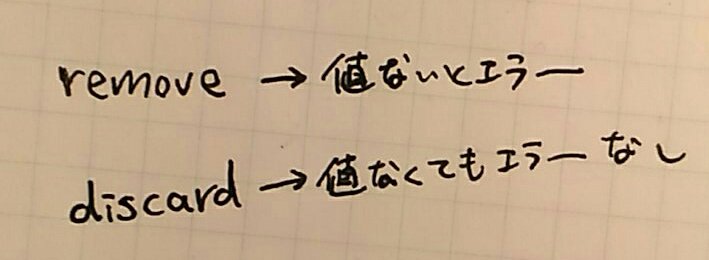 remove → 値ないとエラー
discard → 値なくてもエラーなし